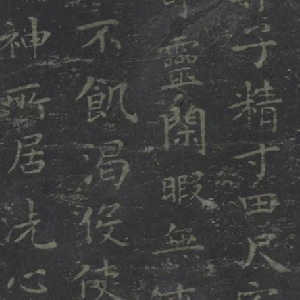 子精寸田尺
靈閑暇無
不飢渴役使
神所居洗心